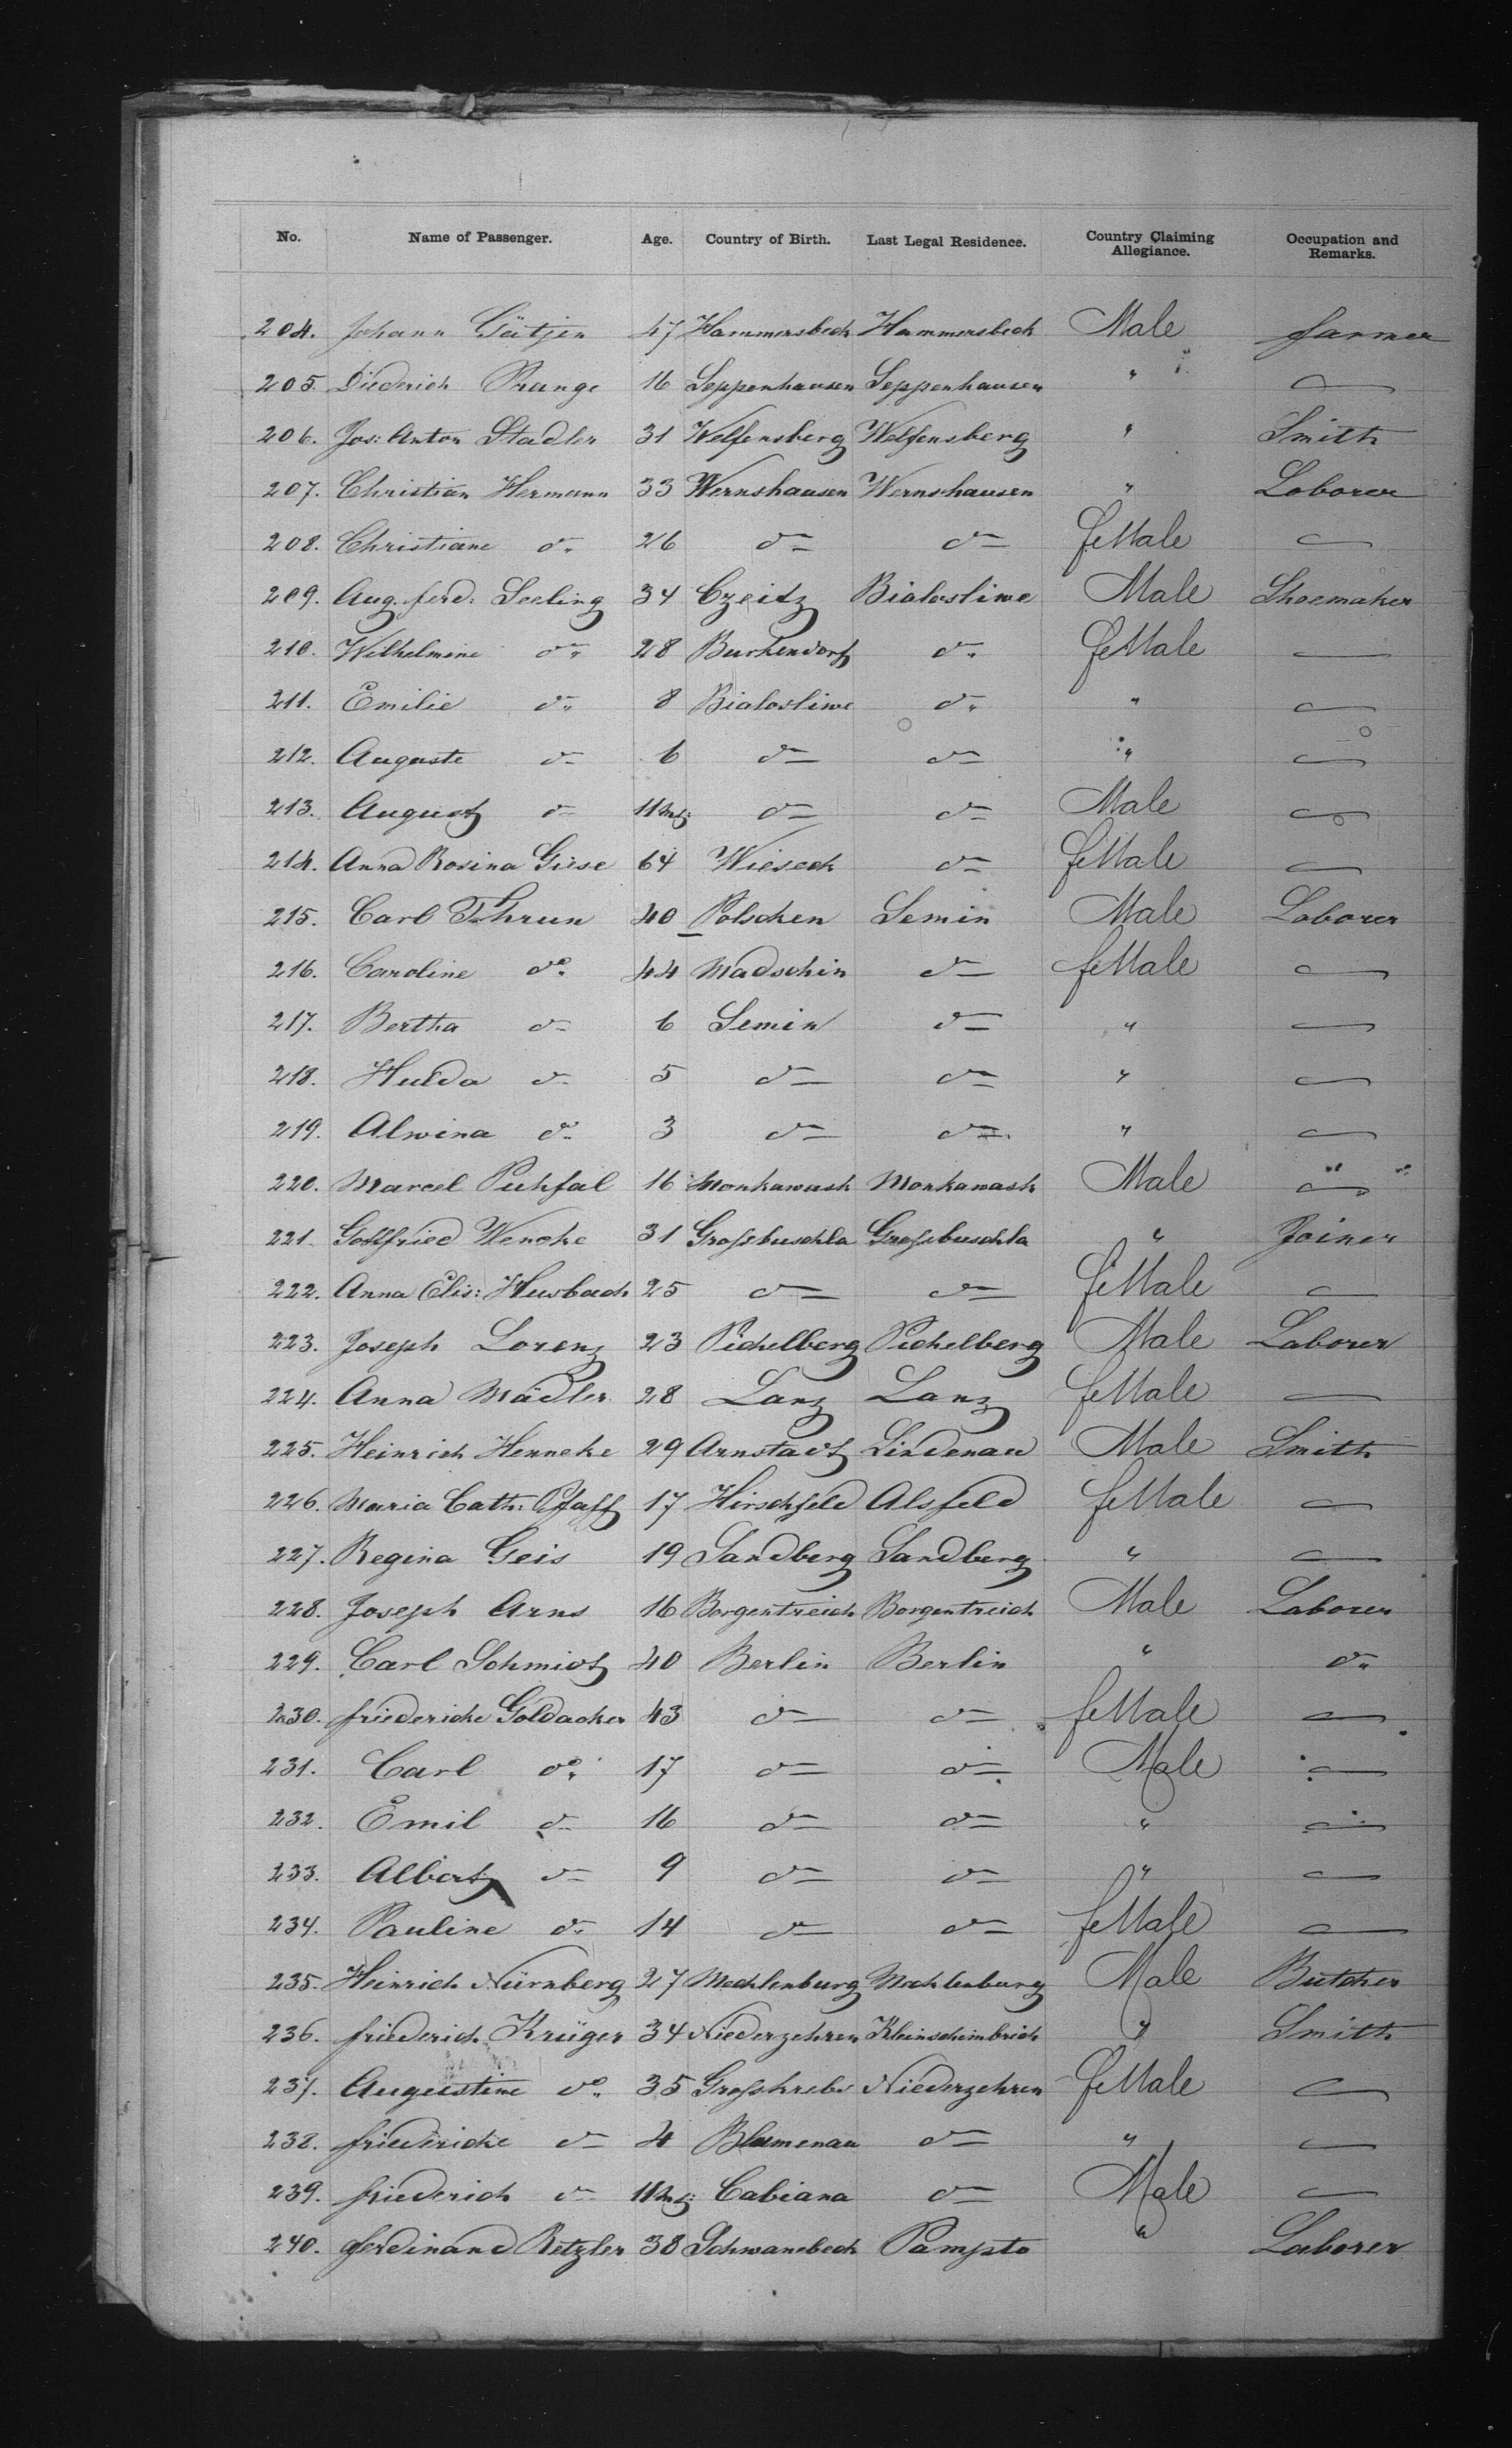 No. Name of Passenger. Age. Country of Birth. Last Legal Residence. Country Claiming Allegiance. Occupation and Remarks.
204. Johann Gätjen 47 Hammersbeck Hammersbeck Male farmer
205. Diederich Prange 16 Seppenhausen Seppenhausen " —
206. Jos: Anton Stadler 31 Welfensberg Welfensberg " Smith
207. Christian Hermann 33 Wernshausen Wernshausen " Laborer
208. Christiane do 26 do do feMale —
209. Aug. ferd: Seeling 34 Czeitz Bialosliwe Male Shoemaker
210. Wilhelmine do 28 Burkendorf do feMale —
211. Emilie do 8 Bialosliwe do " —
212. Auguste do 6 do do " —
213. August do 11 Mt: do do Male —
214. Anna Rosina Giese 64 Wieseck do feMale —
215. Carl Thrun 40 Polschen Semin Male Laborer
216. Caroline do 44 Madschin do feMale —
217. Bertha do 6 Semin do " —
218. Hulda do 5 do do " —
219. Alwina do 3 do do " —
220. Marcel Puhfal 16 Monkawask Monkawask Male —
221. Gottfried Wencke 31 Grosbuschla Grosbuschla " Joiner
222. Anna Elis: Husbach 25 do do feMale —
223. Joseph Lorenz 23 Pichelberg Pichelberg Male Laborer
224. Anna Mädler 28 Lanz Lanz feMale —
225. Heinrich Henneke 29 Arnstadt Lindenau Male Smith
226. Maria Cath: Pfaff 17 Hirschfeld Alsfeld feMale —
227. Regina Geis 19 Sandberg Sandberg " —
228. Joseph Arns 16 Borgentreich Borgentreich Male Laborer
229. Carl Schmidt 40 Berlin Berlin " do
230. friedericke Goldacker 43 do do feMale —
231. Carl do 17 do do Male —
232. Emil do 16 do do " —
233. Albert do 9 do do " —
234. Pauline do 14 do do feMale —
235. Heinrich Nürnberg 27 Mecklenburg Mecklenburg Male Butcher
236. friederich Krüger 34 Niederzehren Kleinschimbrich " Smith
237. Augustine do 35 Groskrebs Niederzehren feMale —
238. friedericke do 4 Blumenau do " —
239. friederich do 11 Mt: Cabiana do Male —
240. ferdinand Retzler 38 Schwanebeck Pampto " Laborer